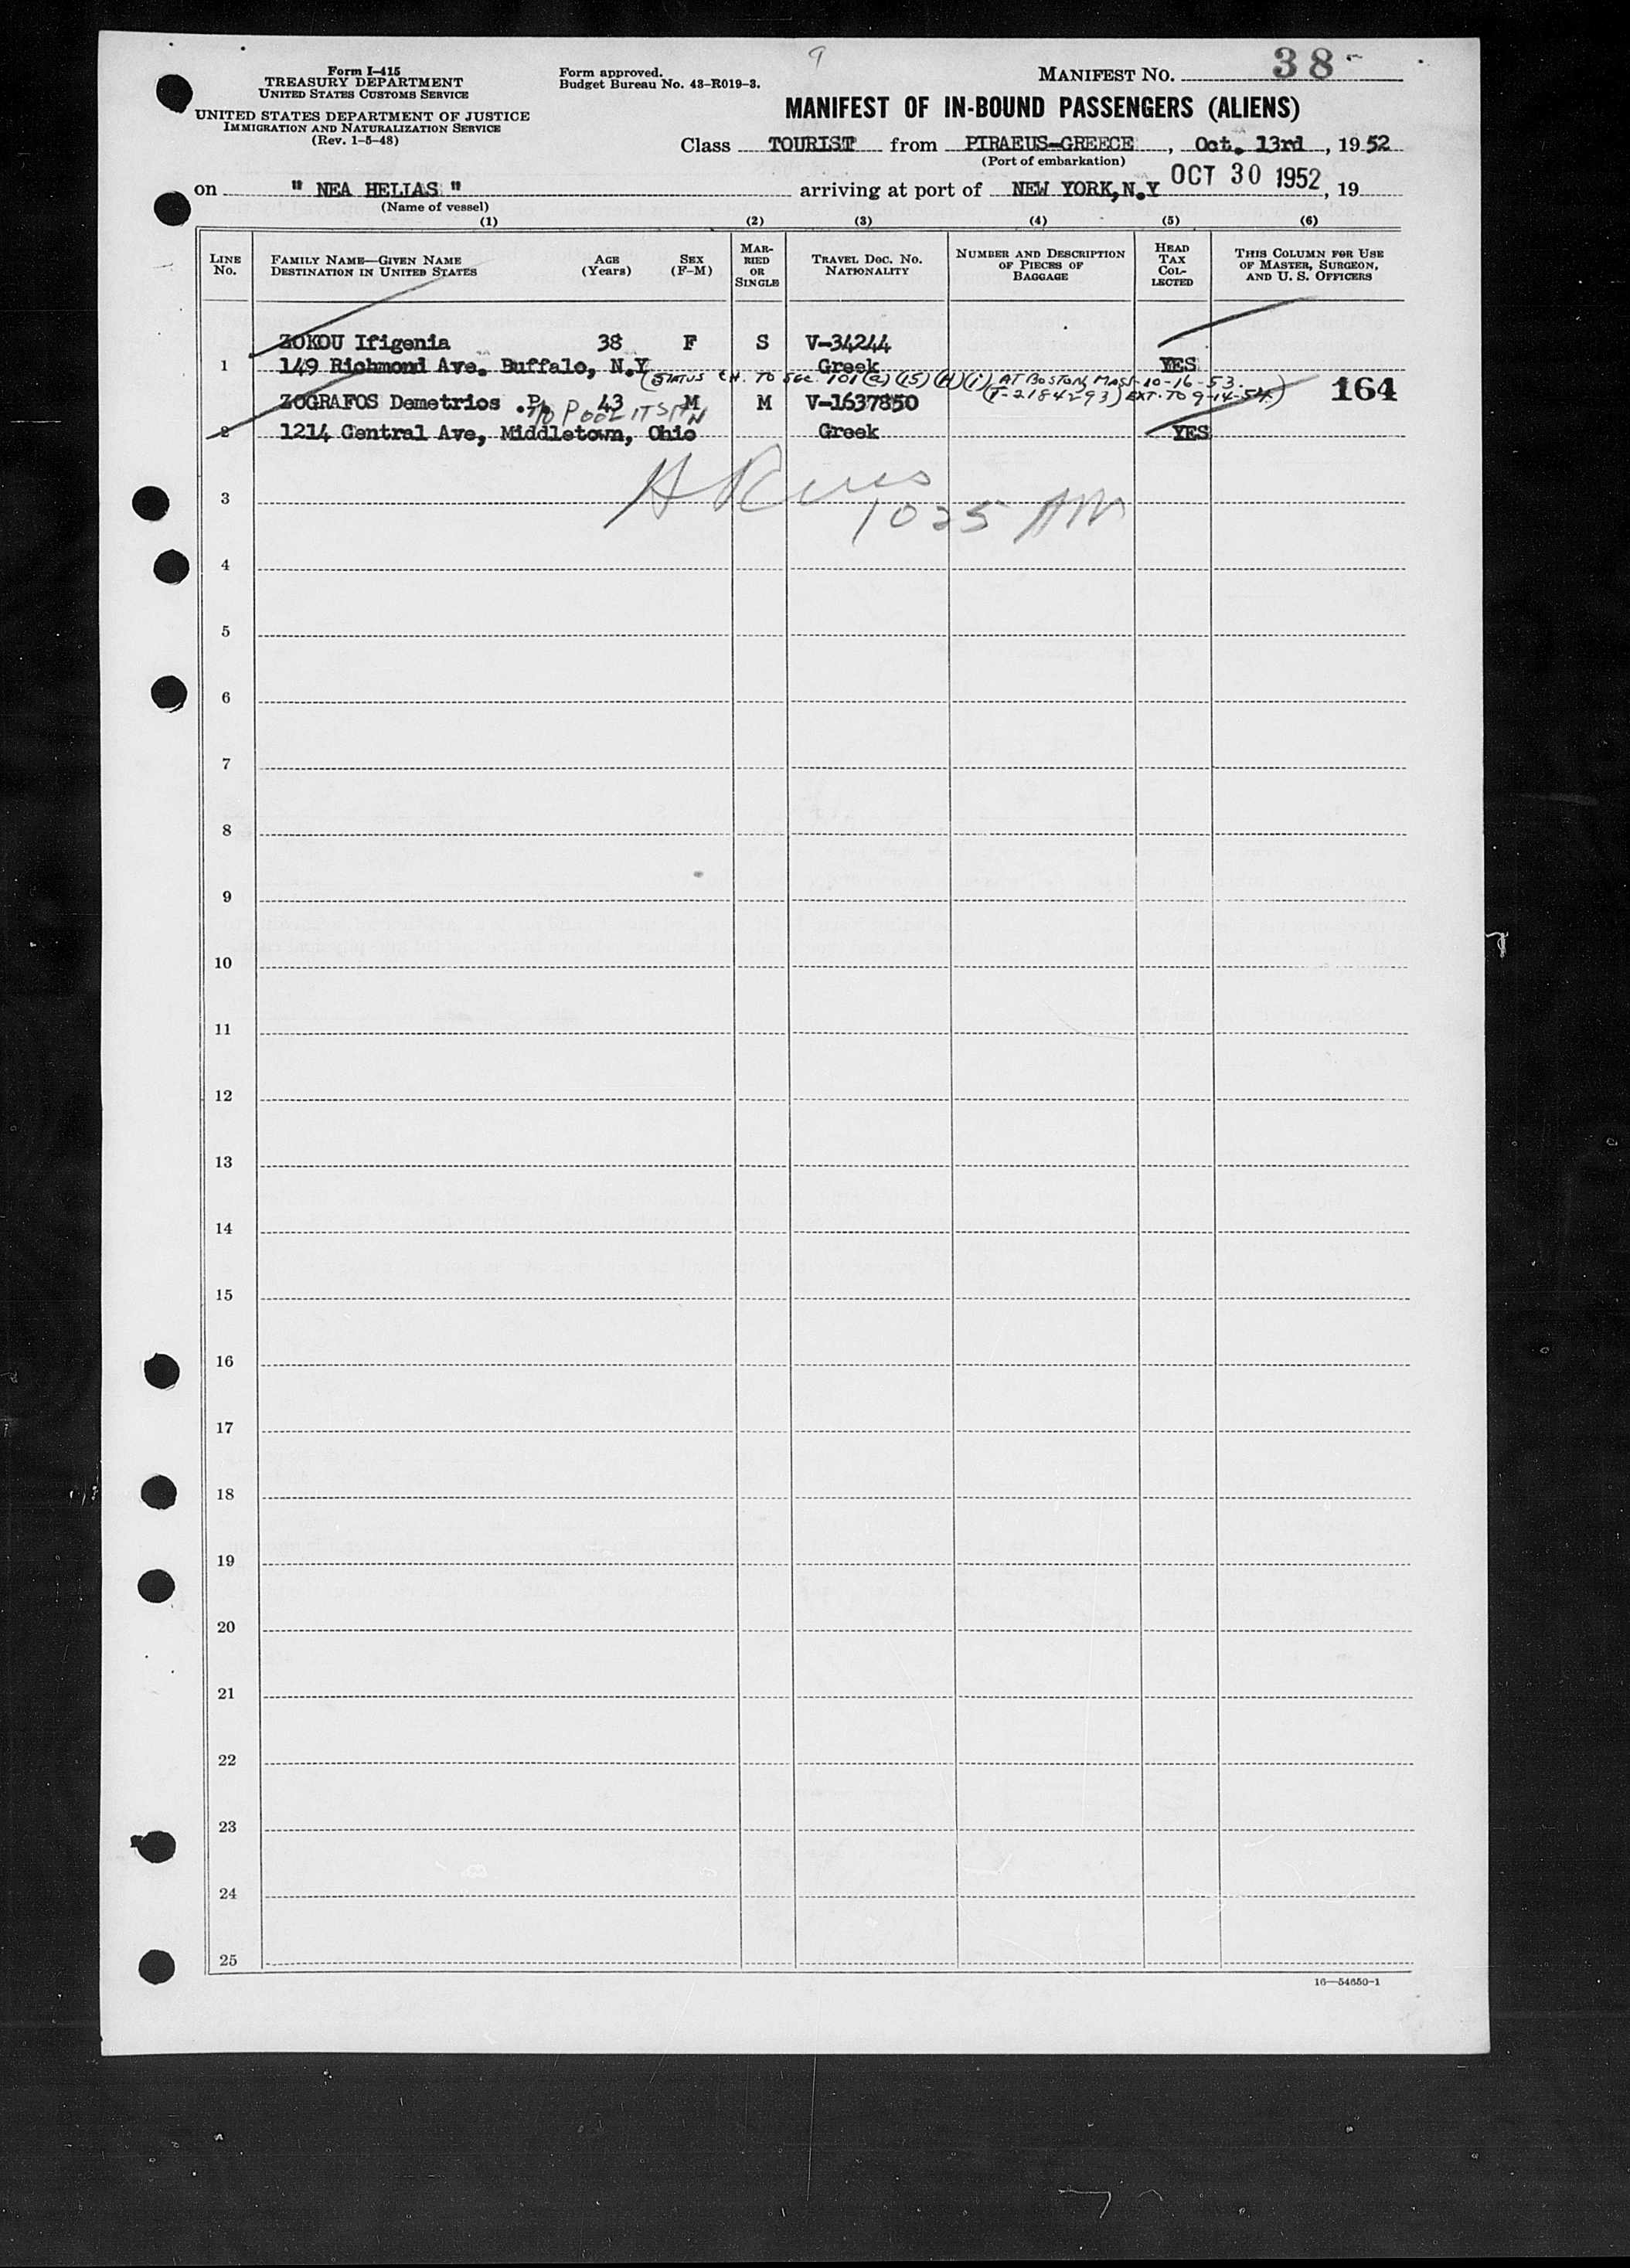 9
Form I-415
TREASURY DEPARTMENT
UNITED STATES CUSTOMS SERVICE
UNITED STATES DEPARTMENT OF JUSTICE
IMMIGRATION AND NATURALIZATION SERVICE
(Rev. 1-5-48)
Form approved.
Budget Bureau No. 43-R019-3.
MANIFEST NO. 38
MANIFEST OF IN-BOUND PASSENGERS (ALIENS)
Class TOURIST from PIRAEUS-GREECE, Oct. 13rd, 1952
(Port of embarkation)
on " NEA HELIAS " arriving at port of NEW YORK, N.Y OCT 30 1952, 19
(Name of vessel)
(1) (2) (3) (4) (5) (6)
LINE No. FAMILY NAME—GIVEN NAME DESTINATION IN UNITED STATES AGE (Years) SEX (F-M) MARRIED OR SINGLE TRAVEL DOC. NO. NATIONALITY NUMBER AND DESCRIPTION OF PIECES OF BAGGAGE HEAD TAX COLLECTED THIS COLUMN FOR USE OF MASTER, SURGEON, AND U. S. OFFICERS
ZOKOU Ifigenia 38 F S V-34244
1 149 Richmond Ave. Buffalo, N.Y Greek YES
(STATUS CH. TO SEC. 101(a)(15)(H)(i) AT BOSTON, MASS-10-16-53.
(T-2184293) EXT. TO 9-14-54) 164
ZOGRAFOS Demetrios .P. 43 M M V-1637850
2 1214 Central Ave, Middletown, Ohio Greek YES
3
1025 AM
4
5
6
7
8
9
10
11
12
13
14
15
16
17
18
19
20
21
22
23
24
25
16—54650-1